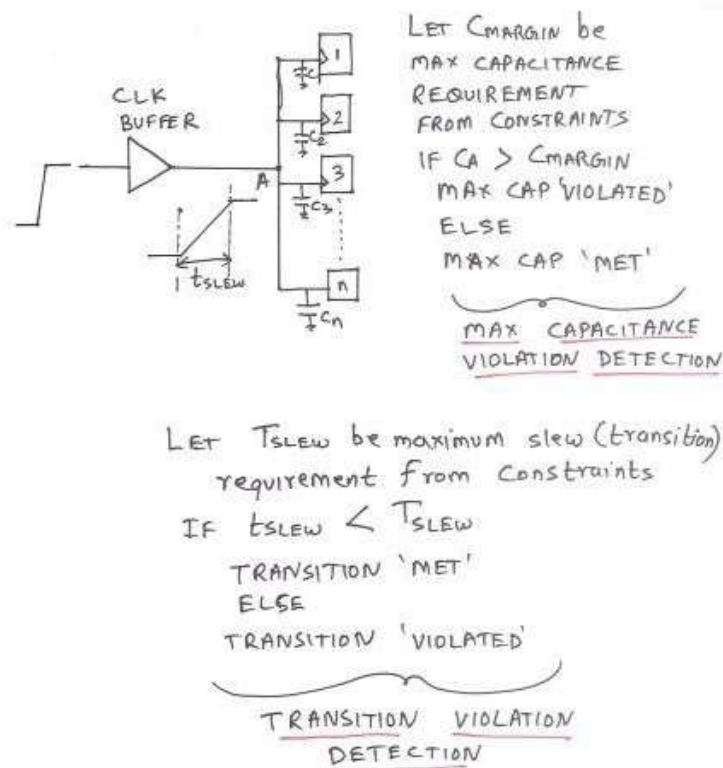 CLK
BUFFER
A
tSLEW
C
1
C2
2
C3
3
Cn
n
LET CMARGIN be
MAX CAPACITANCE
REQUIREMENT
FROM CONSTRAINTS
IF CA > CMARGIN
MAX CAP 'VIOLATED'
ELSE
MAX CAP 'MET'
MAX CAPACITANCE
VIOLATION DETECTION
LET TSLEW be maximum slew (transition)
requirement from constraints
IF tSLEW < TSLEW
TRANSITION 'MET'
ELSE
TRANSITION 'VIOLATED'
TRANSITION VIOLATION
DETECTION